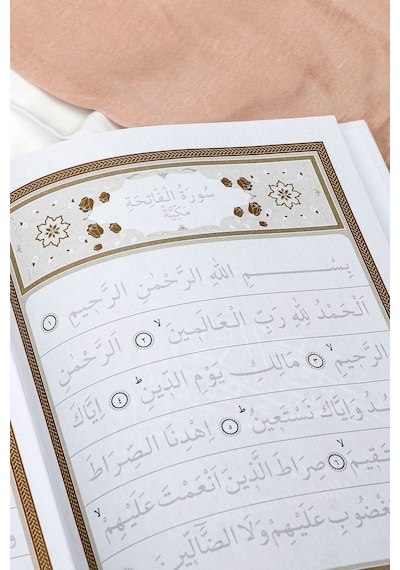 سُورَةُ الْفَاتِحَةِ
مَكِّيَّةٌ
بِسْمِ اللهِ الرَّحْمٰنِ الرَّحِيمِ ١
اَلْحَمْدُ لِلهِ رَبِّ الْعَالَمِينَ ٢ اَلرَّحْمٰنِ
الرَّحِيمِ ٣ مَالِكِ يَوْمِ الدِّينِ ٤ اِيَّاكَ
وَاِيَّاكَ نَسْتَعِينُ ٥ اِهْدِنَا الصِّرَاطَ
٦ صِرَاطَ الَّذِينَ اَنْعَمْتَ عَلَيْهِمْ
عَلَيْهِمْ وَلَا الضَّٓالِّينَ